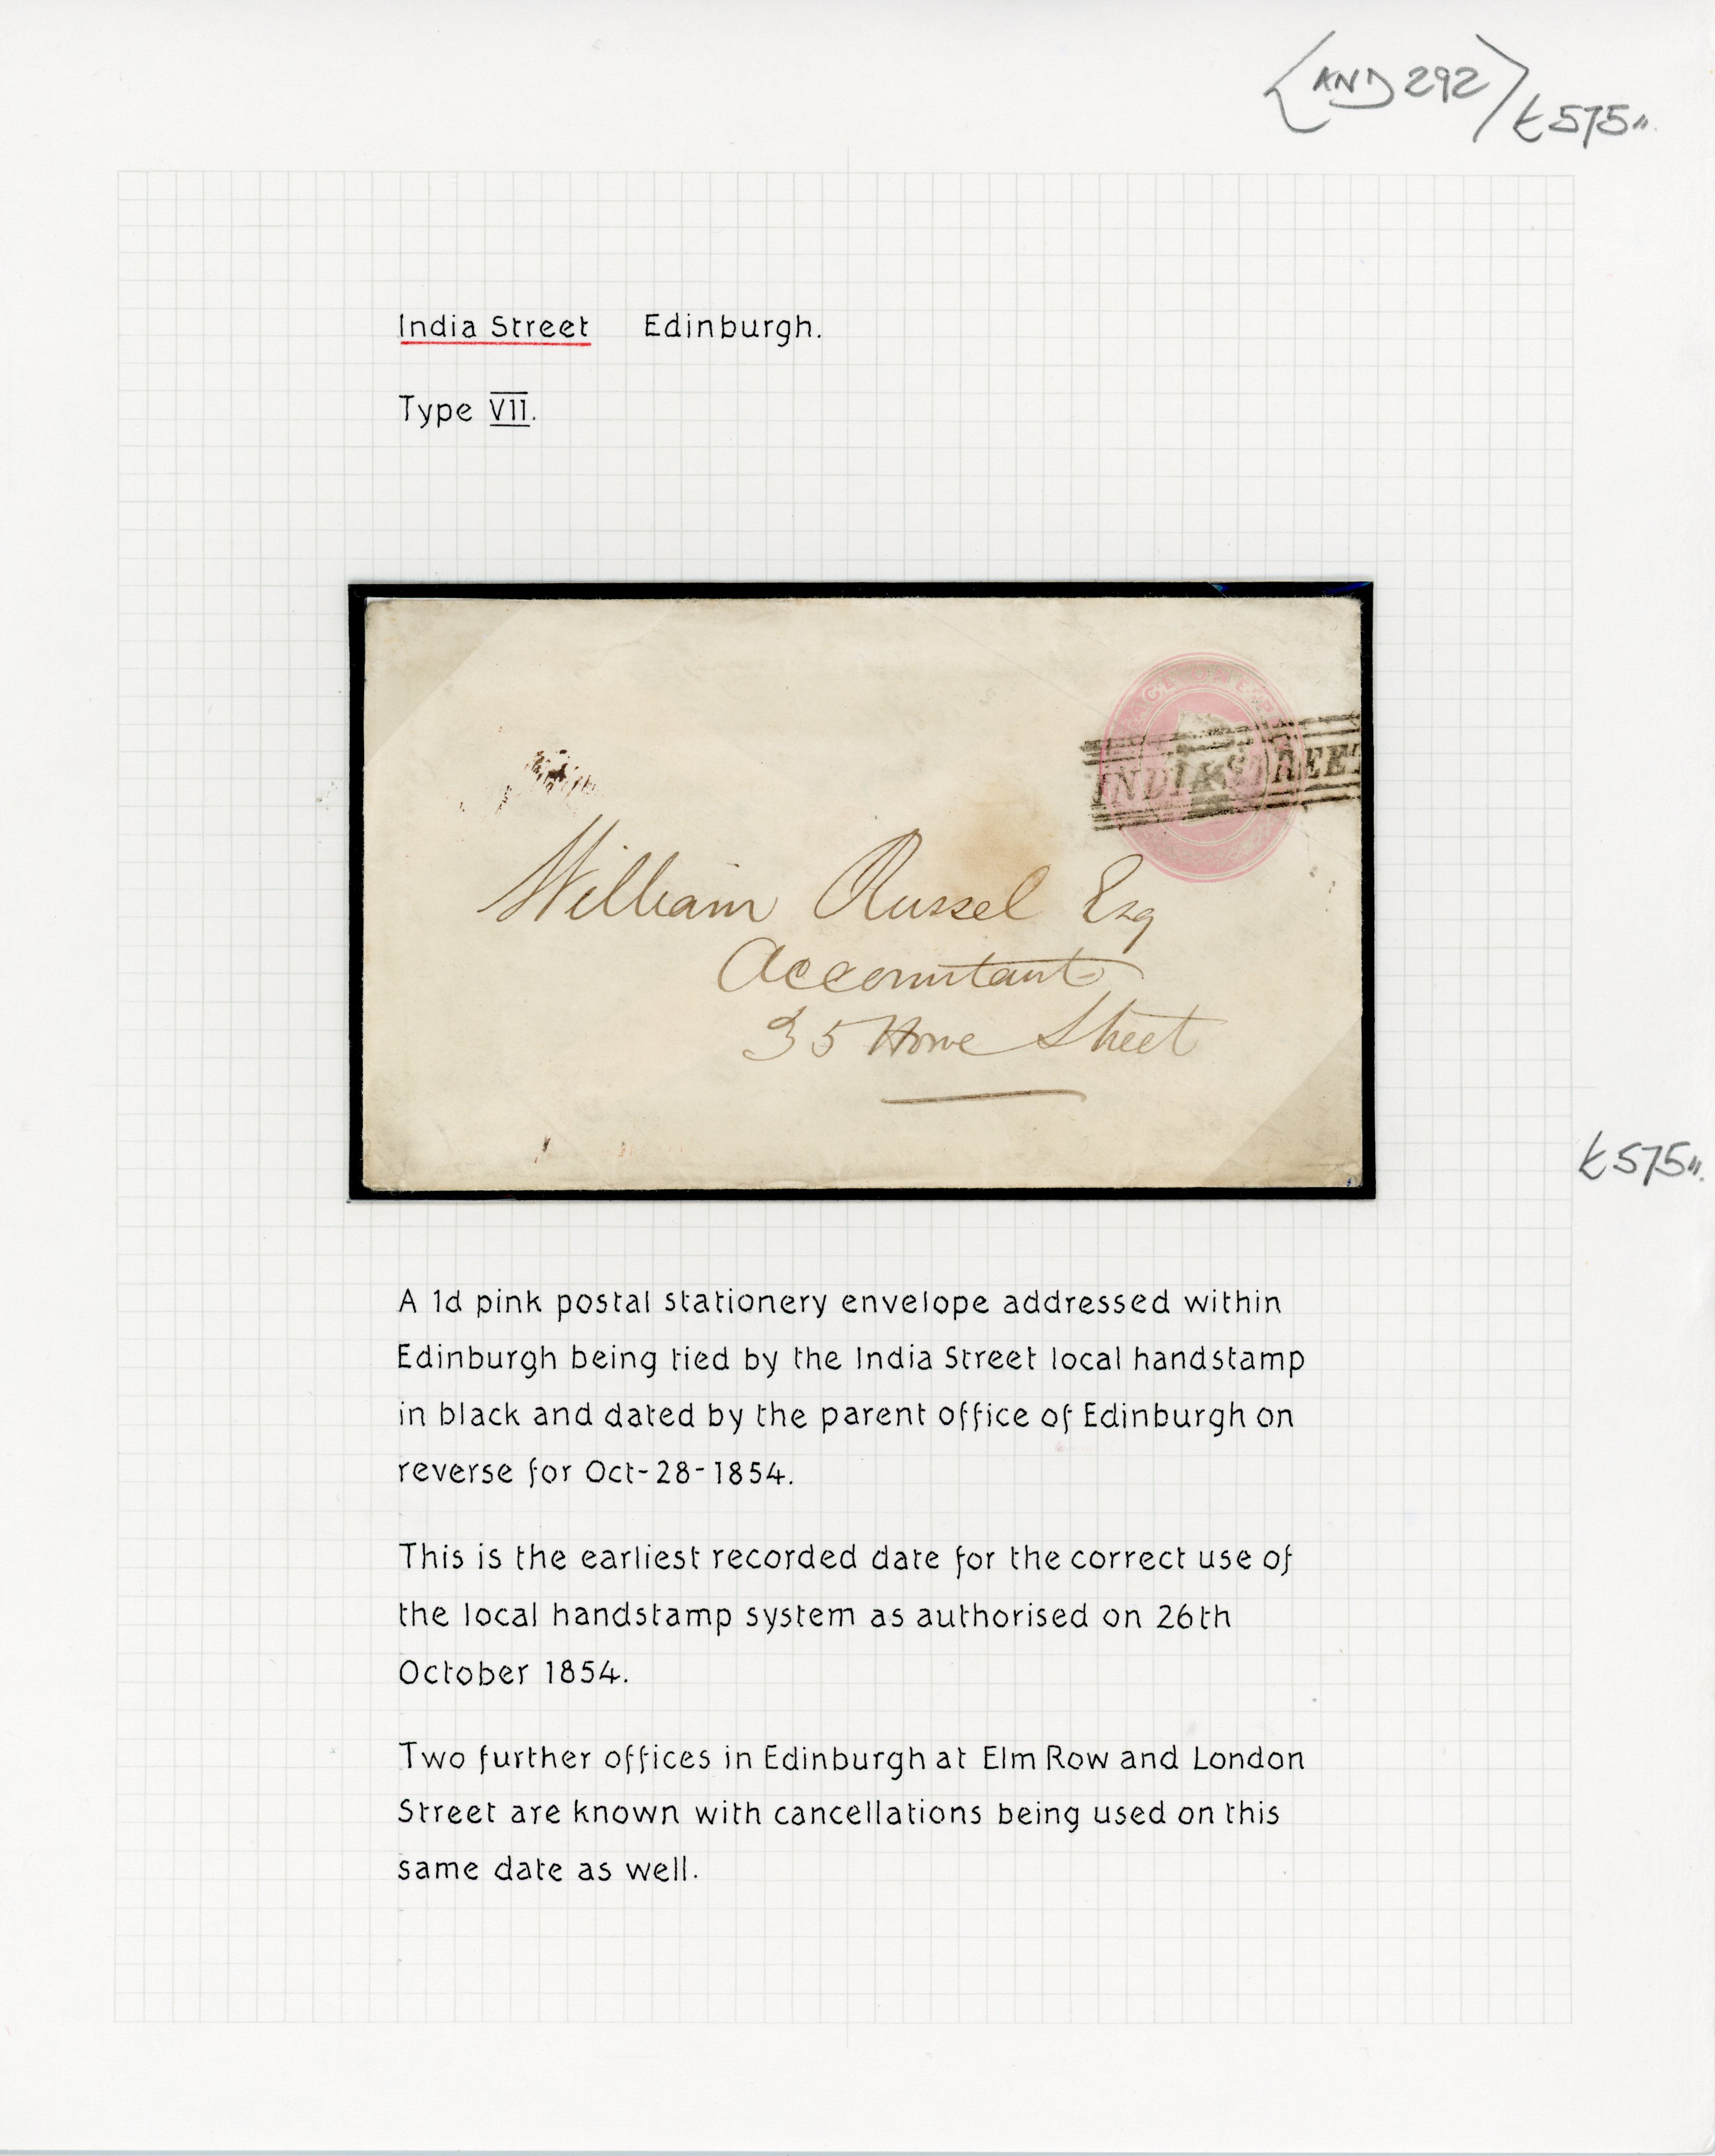 <AND 292>
£575"
India Street Edinburgh.
Type VII.
INDIA STREET
William Russel Esq
Accountant
35 Howe Street
£575".
A 1d pink postal stationery envelope addressed within
Edinburgh being tied by the India Street local handstamp
in black and dated by the parent office of Edinburgh on
reverse for Oct-28-1854.
This is the earliest recorded date for the correct use of
the local handstamp system as authorised on 26th
October 1854.
Two further offices in Edinburgh at Elm Row and London
Street are known with cancellations being used on this
same date as well.